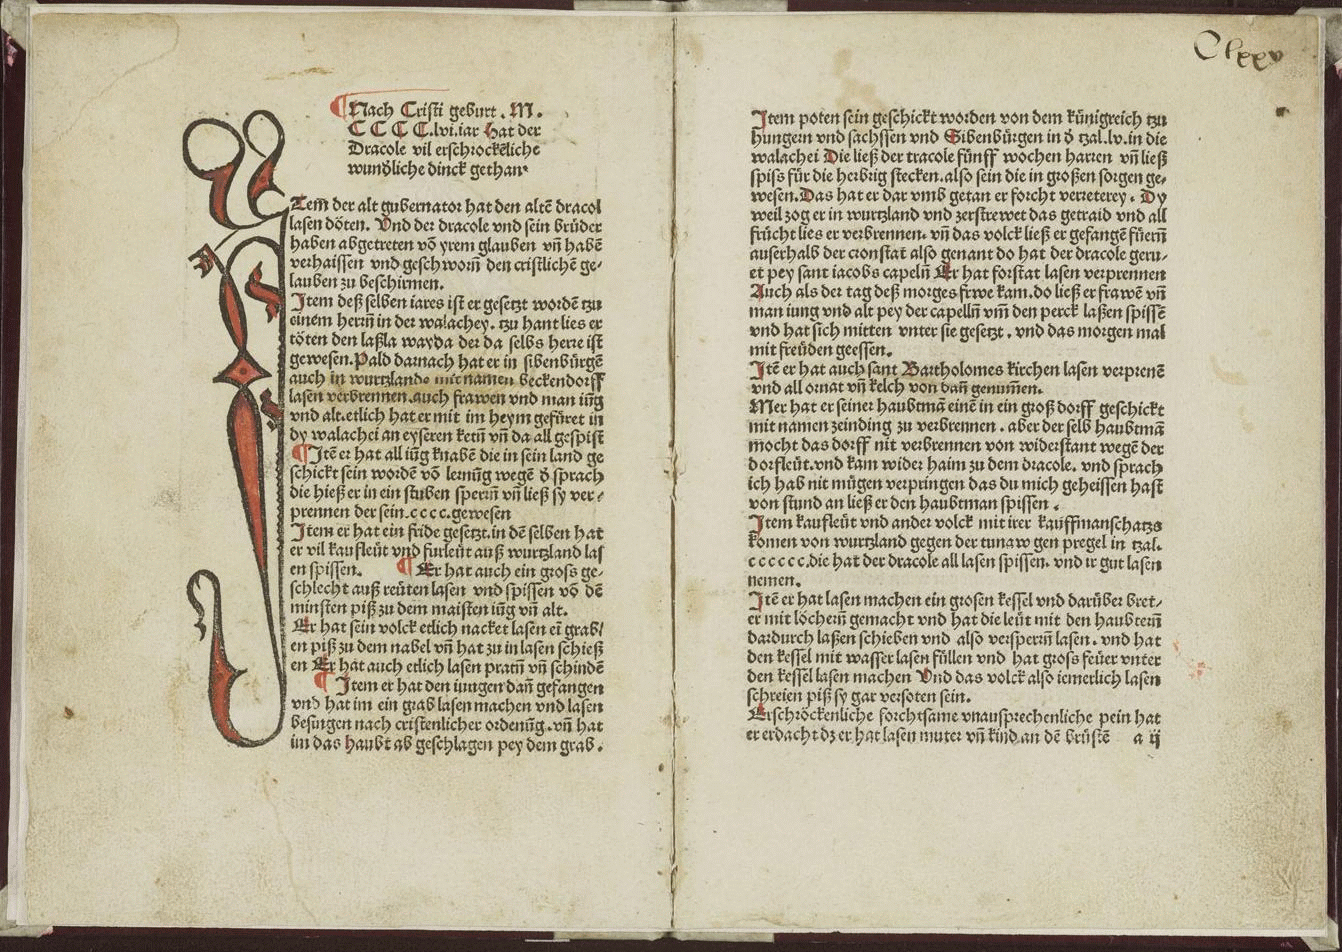 Nach Cristi geburt. M.
C C C C.lvi.iar hat der
Dracole vil erschrockēliche
wunđliche dinck gethan.
Item der alt gubernator hat den altē dracol
lasen döten. Vnd der dracole vnd sein brüder
haben abgetreten vō yrem glauben vn̄ habē
verhaissen vnd geschworn̄ den cristlichē ge-
lauben zu beschirmen.
Item deß selben iares ist er gesetzt wordē tzu
einem herrn̄ in der walachey. tzu hant lies er
töten den laßla wayda der da selbs herre ist
gewesen. Pald darnach hat er in sibenbürgē
auch in wurtzlande mit namen beckendorff
lasen verbrennen.auch frawen vnd man iūg
vnd alt.etlich hat er mit im heym gefüret in
dy walachei an eyseren ketn̄ vn̄ da all gespist
Itē er hat all iūg knabē die in sein land ge
schickt sein wordē vō lernūg wegē đ sprach
die hieß er in ein stuben sperrn̄ vn̄ ließ sy ver-
prennen der sein.c c c c.gewesen
Item er hat ein fride gesetzt.in dē selben hat
er vil kaufleüt vnd furleüt auß wurtzland las
en spissen. Er hat auch ein gross ge-
schlecht auß reüten lasen vnd spissen vō dē
minsten piß zu dem maisten iūg vn̄ alt.
Er hat sein volck etlich nacket lasen eī grab/
en piß zu dem nabel vn̄ hat zu in lasen schieß
en Er hat auch etlich lasen pratn̄ vn̄ schindē
Item er hat den iungen dan̄ gefangen
vnd hat im ein grab lasen machen vnd lasen
besūngen nach cristenlicher ordenūg.vn̄ hat
im das haubt ab geschlagen pey dem grab.
Clxxv
Item poten sein geschickt worden von dem künigreich tzu
hungern vnd sachssen vnd Sibenbürgen in đ tzal.lv.in die
walachei Die ließ der tracole fünff wochen harren vn̄ ließ
spiss für die herbrig stecken.also sein die in großen sorgen ge-
wesen. Das hat er dar vmb getan er forcht verreterey. Dy
weil zog er in wurtzland vnd zerstrewet das getraid vnd all
frücht lies er verbrennen. vn̄ das volck ließ er gefangē füern̄
auserhalb der cronstat also genant do hat der dracole geru-
et pey sant iacobs capeln̄ Er hat forstat lasen verprennen
Auch als der tag deß morges frwe kam.do ließ er frawē vn̄
man iung vnd alt pey der capelln̄ vm̄ den perck laßen spissē
vnd hat sich mitten vnter sie gesetzt. vnd das morgen mal
mit freüden geessen.
Itē er hat auch sant Bartholomes kirchen lasen verprenē
vnd all ornat vn̄ kelch von dan̄ genum̄en.
Mer hat er seiner haubtmā einē in ein groß dorff geschickt
mit namen zeinding zu verbrennen. aber der selb haubtmā
mocht das dorff nit verbrennen von widerstant wegē der
dorfleüt.vnd kam wider haim zu dem dracole. vnd sprach
ich hab nit mügen verpringen das du mich geheissen hast
von stund an ließ er den haubtman spissen.
Item kaufleüt vnd ander volck mit irer kauffmanschatzs
komen von wurtzland gegen der tunaw gen pregel in tzal.
c c c c c c.die hat der dracole all lasen spissen. vnd ir gut lasen
nemen.
Itē er hat lasen machen ein grosen kessel vnd darüber bret-
er mit löchern̄ gemacht vnd hat die leüt mit den haubtern̄
dardurch laßen schieben vnd also versperrn̄ lasen. vnd hat
den kessel mit wasser lasen füllen vnd hat gross feüer vnter
den kessel lasen machen Vnd das volck also iemerlich lasen
schreien piß sy gar versoten sein.
Erschröckenliche forchtsame vnausprechenliche pein hat
er erdacht dz er hat lasen muter vn̄ kind an dē brüstē a ij